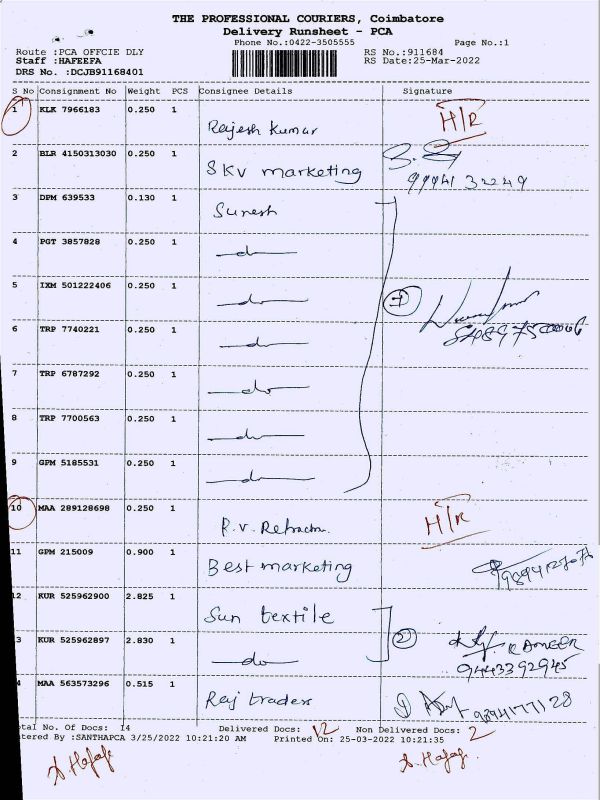 THE PROFESSIONAL COURIERS, Coimbatore
Delivery Runsheet - PCA
Phone No.:0422-3505555 Page No.:1
Route :PCA OFFCIE DLY RS No.:911684
Staff :HAFEEFA RS Date:25-Mar-2022
DRS No. :DCJB91168401
S No Consignment No Weight PCS Consignee Details Signature
1 KLK 7966183 0.250 1 Rajesh Kumar H/R
2 BLR 4150313030 0.250 1 SKV marketing
3 DPM 639533 0.130 1 Suresh
4 PGT 3857828 0.250 1 do
5 IXM 501222406 0.250 1 do 7
6 TRP 7740221 0.250 1 do
7 TRP 6787292 0.250 1 do
8 TRP 7700563 0.250 1 do
9 GPM 5185531 0.250 1 do
10 MAA 289128698 0.250 1 R.V. H/R
11 GPM 215009 0.900 1 Best marketing
12 KUR 525962900 2.825 1 Sun textile 2
3 KUR 525962897 2.830 1 do 9443392945
4 MAA 563573296 0.515 1 Raj traders 9894177128
otal No. Of Docs: 14 Delivered Docs: 12 Non Delivered Docs: 2
tered By :SANTHAPCA 3/25/2022 10:21:20 AM Printed On: 25-03-2022 10:21:35